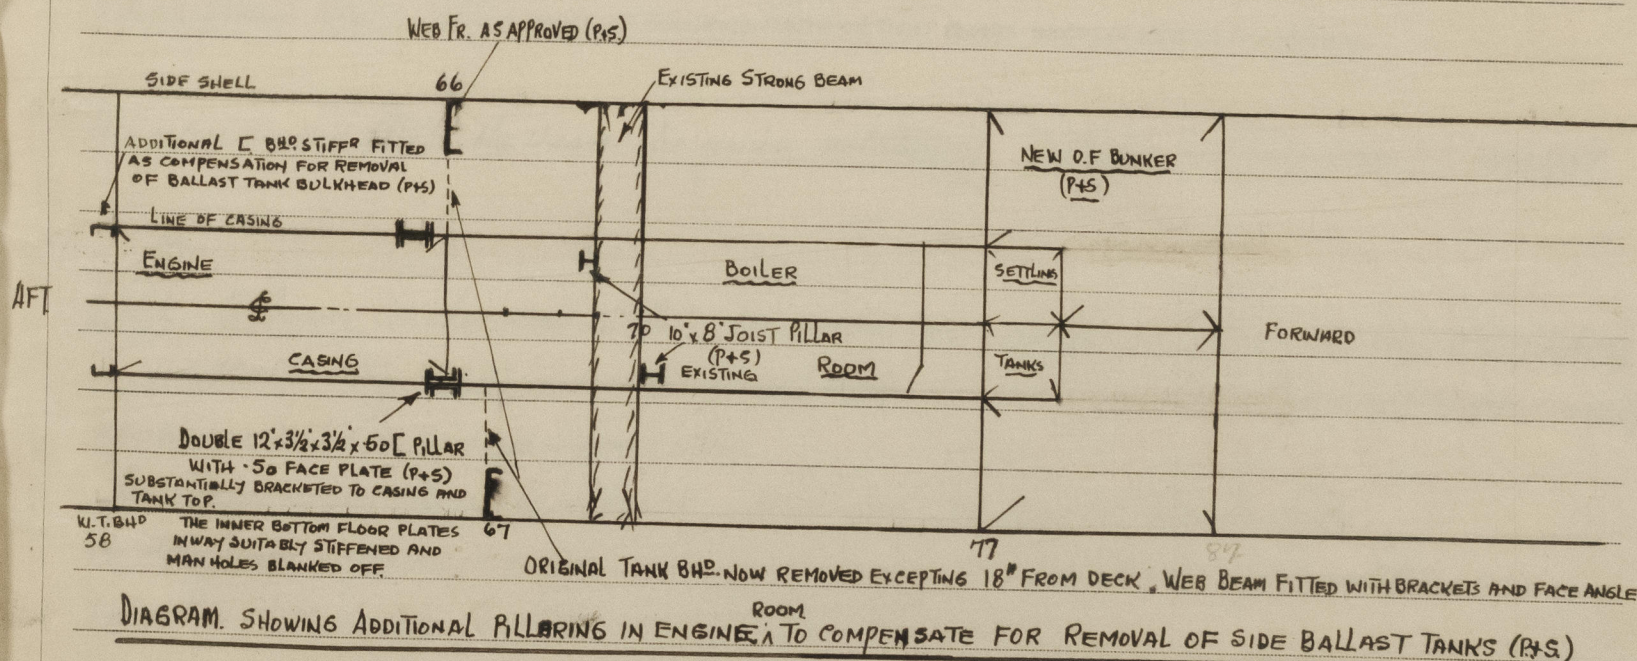 WEB FR. AS APPROVED (P+S)
SIDE SHELL
66
EXISTING STRONG BEAM
ADDITIONAL [ BHD. STIFFR FITTED
AS COMPENSATION FOR REMOVAL
OF BALLAST TANK BULKHEAD (P+S)
NEW O.F BUNKER
(P+S)
LINE OF CASING
ENGINE
BOILER
SETTLING
AFT
70
10"x 8" JOIST PILLAR
(P+S)
EXISTING
ROOM
FORWARD
CASING
TANKS
DOUBLE 12"x3½"x3½"x.50 [ PILLAR
WITH .50 FACE PLATE (P+S)
SUBSTANTIALLY BRACKETED TO CASING AND
TANK TOP.
W.T. BHD
58
THE INNER BOTTOM FLOOR PLATES
INWAY SUITABLY STIFFENED AND
MAN HOLES BLANKED OFF.
67
77
ORIGINAL TANK BHD. NOW REMOVED EXCEPTING 18" FROM DECK. WEB BEAM FITTED WITH BRACKETS AND FACE ANGLE
DIAGRAM. SHOWING ADDITIONAL PILLARING IN ENGINE ROOM TO COMPENSATE FOR REMOVAL OF SIDE BALLAST TANKS (P+S)